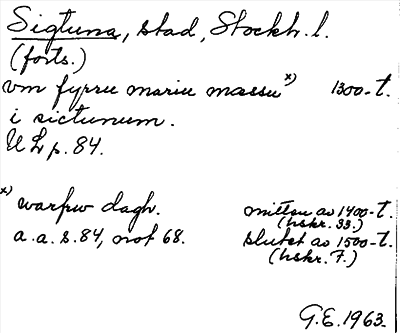 Sigtuna, stad, Stockh. l.
(forts.)
vm fyrru mariu mæssu x) 1300-t.
i sictunum.
UL s. 84.
x) warfrw dagh. mitten av 1400-t.
(hskr. 33.)
a.a. s. 84, not 68. slutet av 1500-t.
(hskr. 7.)
G.E. 1963.